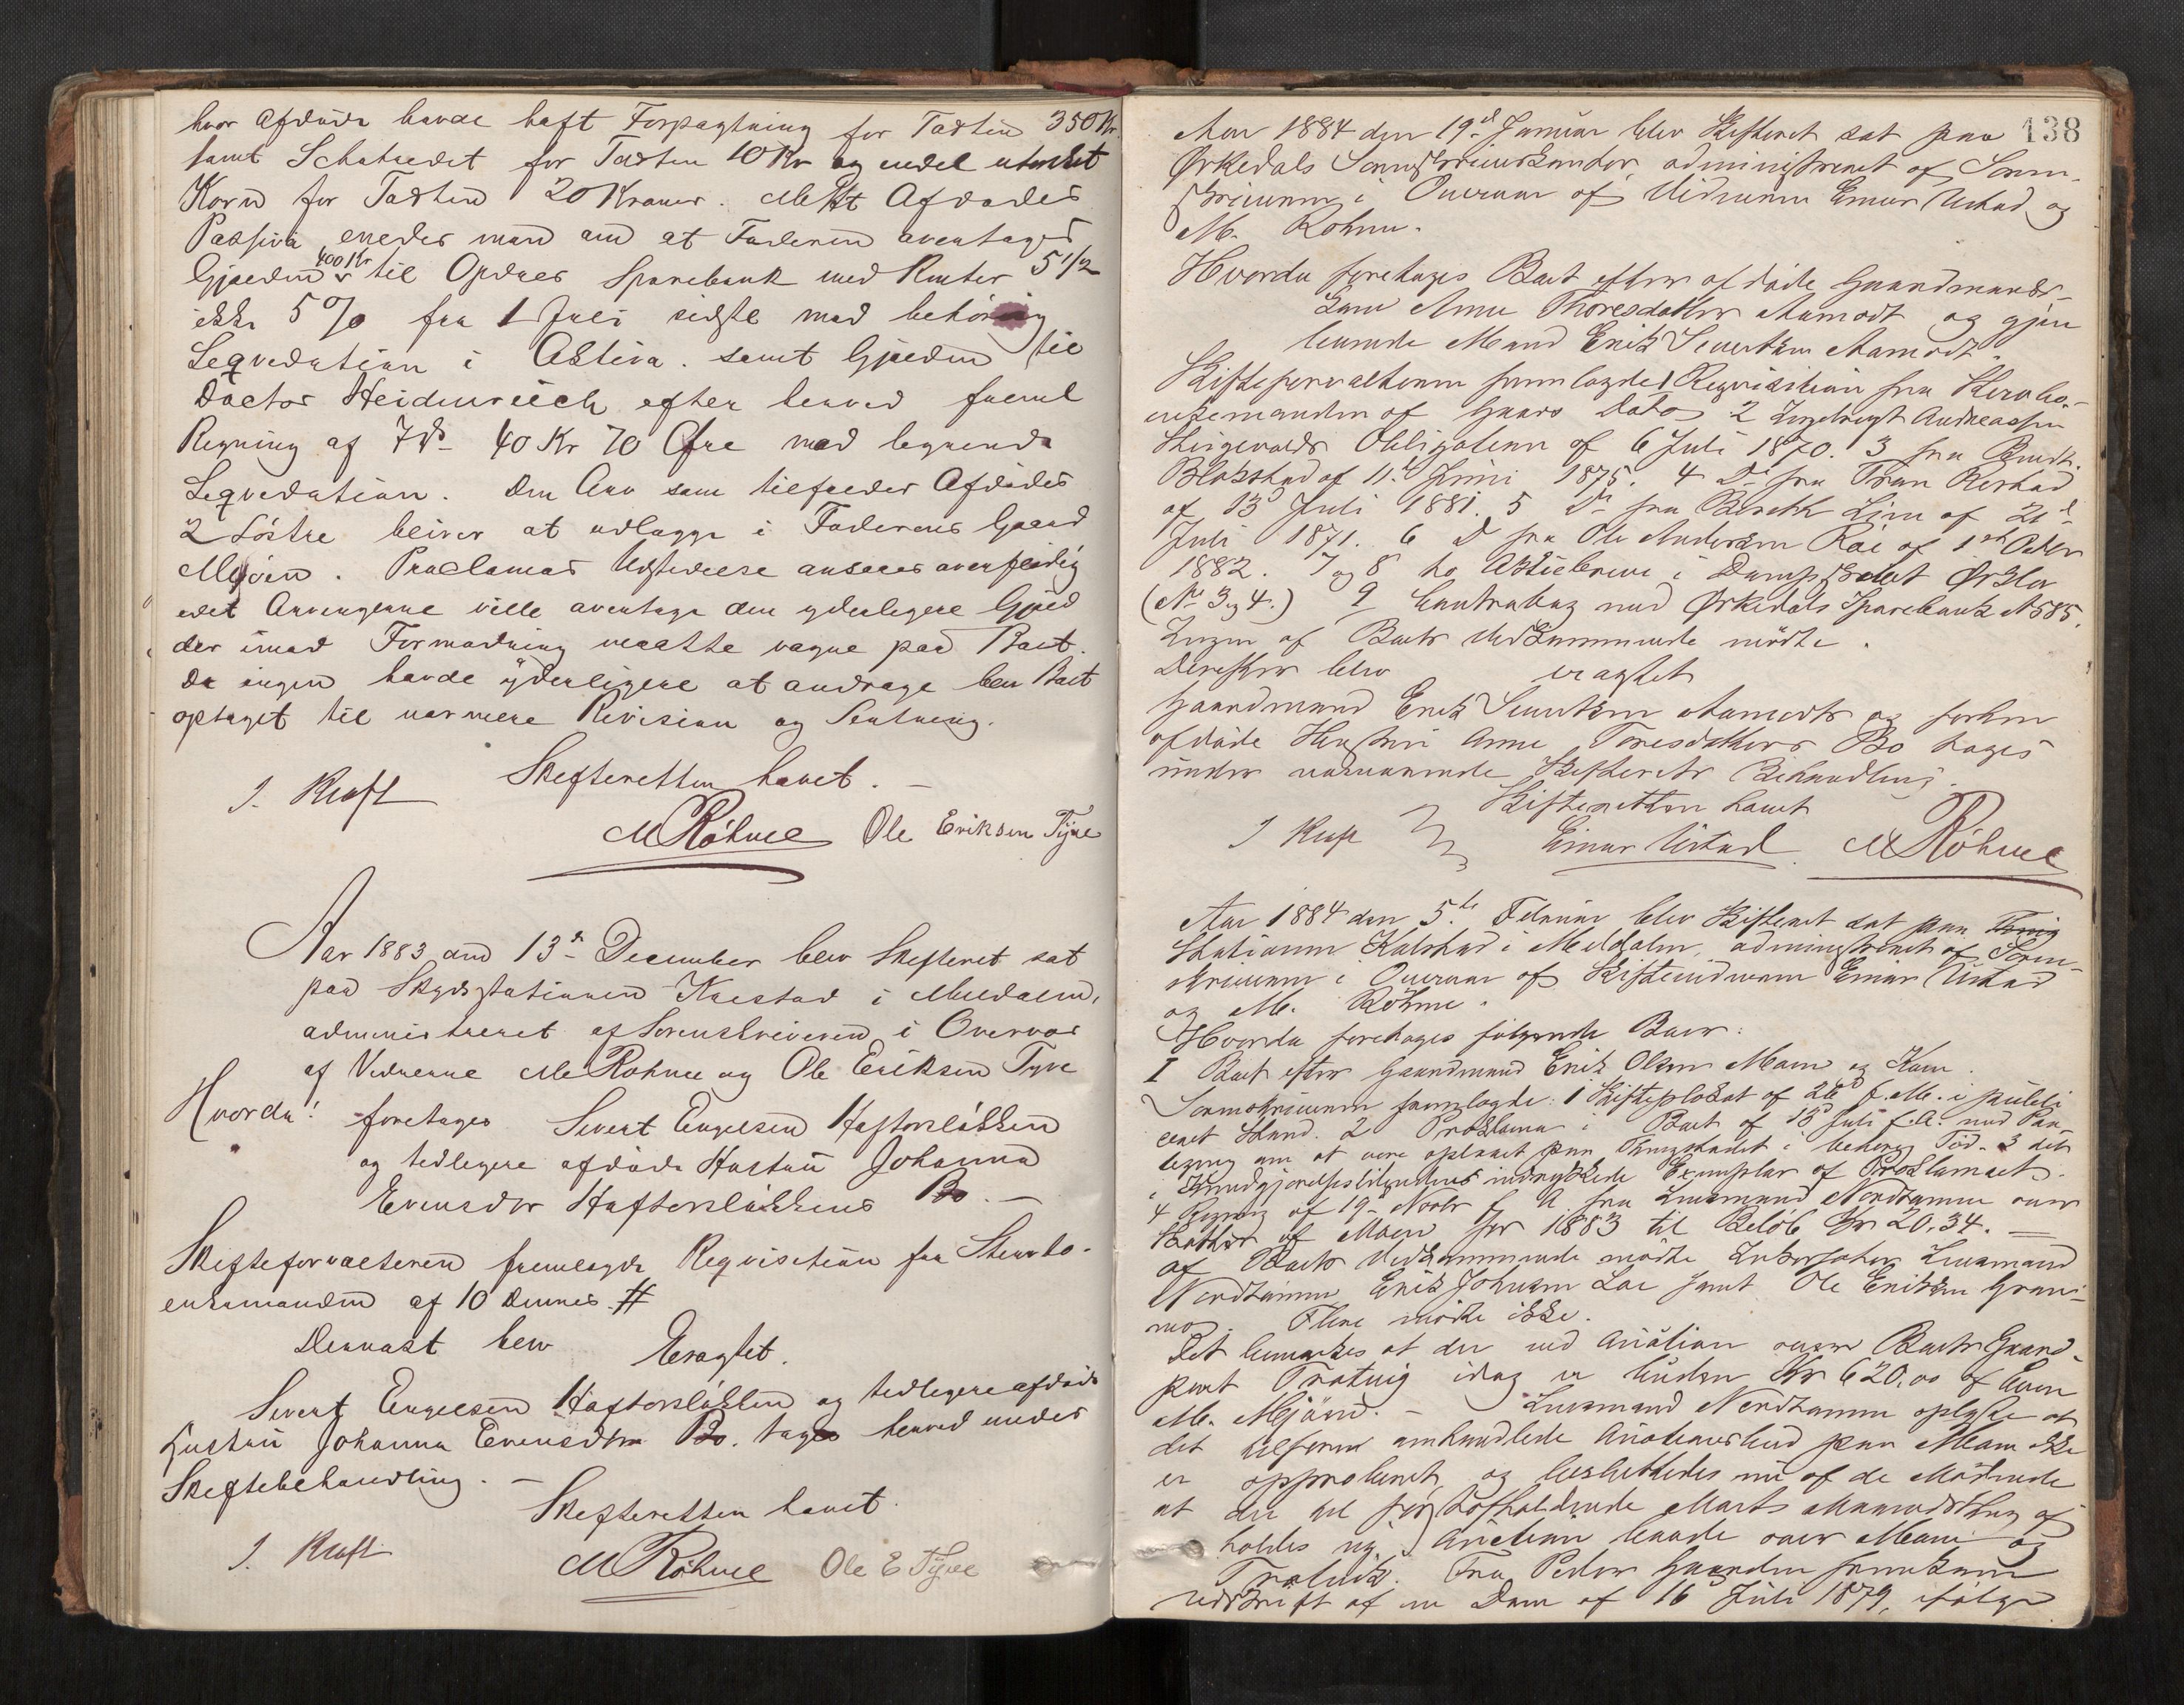 hvor Afdøde havde haft Forpagtning for Taxten 350 Kr.
samt Schæteedet for Taxten 10 Kr og endel utærsket
Korn for Taxten 20 Kroner. Med Afdødes
Passiva enedes man om at Faderen overtager
Gjælden 400 Kr til Opdals Sparebank med Renter 5 1/2
ikke 5 % fra 1 Juli sidste mod behørig
Leqvidation i Aktiva. samt Gjælden til
Doctor Heidenreich efter herved freml
Regning af 7de 40 Kr 70 Øre mod lignende
Leqvidation. Den Arv som tilfalder Afdødes
2 Søstre bliver at udlægge i Faderens Gaard
Mjøen. Proclamas Udstedelse ansees overflødig
idet Arvingerne ville overtage den yderligere Gjæld
der imod Formodning maatte vægne paa Boet.
Da ingen havde yderligere at andrage blev Boet
optaget til nærmere Revision og Slutning.
Skifteretten hævet.
J. Kraft
M Röhme Ole Eriksen Tyve
Aar 1883 den 13de December blev Skifteret sat
paa Skydsstationen Kalstad i Meldalen,
administreret af Sorenskriveren i Overvær
af Vidnerne M. Rohme og Ole Eriksen Tyve
Hvorda: foretages Sivert Engelsen Haftorsløkken
og tidligere afdøde Hustru Johanna
Evensdtr Haftorsløkkens Bo. —
Skifteforvalteren fremlagde Reqvisition fra Stervbo-
enkemanden af 10 dennes. #
Dernæst blev Eragtet.
Sivert Engelsen Haftorsløkken og tidligere afdøde
Hustru Johanna Evensdtr Bo. tages herved under
Skiftebehandling. —
Skifteretten hævet.
J. Kraft
M Röhme Ole E Tyve
138
Aar 1884 den 19d Januar blev Skifteret sat paa
Ørkedals Sorenskriverkontor, administreret af Soren-
skriveren i Overvær af Vidnerne Einar Ustad og
M. Rohme.
Hvorda foretages Boet efter afdøde Gaardmands-
kone Anne Thoresdatter Aamodt og gjen
levende Mand Erik Sivertsen Aamodt.
Skifteforvalteren fremlagde 1 Reqvisition fra Stervbo-
enkemanden af Gaars Dato 2 Ingebrigt Andreassen
Obligation af 6 Juli 1870. 3 fra
Blokstad af 11te Juni 1875. 4 Do fra
af 13d Juli 1881. 5 Do fra Lien af 21d
Juli 1871. 6 D fra Ole Andersen Roe af 1ste Octbr
1882. 7 og 8 to Aktiebreve i Dampskibet Ørkla
(No 3 og 4.) 9 Contrabog med Ørkedals Sparebank No 585.
Ingen af Boets Vedkommende mødte.
Derefter blev eragtet
Gaardmand Erik Sivertsen Aamodts og forhen
afdøde Hustru Anne Toresdatters Bo tages
under nærværende Skifterets Behandling.
Skifteretten hævet
J Kraft Einar Ustad. M Röhme
Aar 1884 den 5te Februar blev Skifteret sat paa
Stationen Kalstad i Meldalen, administreret af Soren-
skriveren i Overvær af Skiftevidnerne Einar Ustad
og M. Röhme.
Hvorda foretages følgende Boer:
I Boet efter Gaardmand Erik Olsen Moen og Kone.
Sorenskriveren fremlagde: 1 Skifteplakat af 26d f. M. i publi
ceret Stand. 2 Proklama i Boet af 13d Juli f. A. med Paa-
tegning om at være oplæst paa Thingstedet i betimg Tid. 3 det
i Kundgjørelsestidenden indrykkede Exemplar af Proklamaet.
4 Regning af 19de Novbr f. A fra Lensmand Nordtømme over
Skatter af Moen for 1883 til Beløb Kr 20,34. —
Af Boets Vedkommende mødte Inkassator Lensmand
Nordtømme, Erik Johnsen Loe samt Ole Eriksen Gran-
mo. Flere mødte ikke.
Det bemærkes at der ved Auction over Boets Gaard-
part idag er buden Kr 620,00 af Even
M. Mjøen. — Lensmand Nordtømme oplyste at
det omhandlede Auctionsbud paa Moen ikke
er approberet, og besluttedes nu af de Mødende
at der
holdes ny Auction baade over Moen og
Fra Peder Gaarden fremkom
Udskrift af en Dom af 16 Juli 1879, ifølge